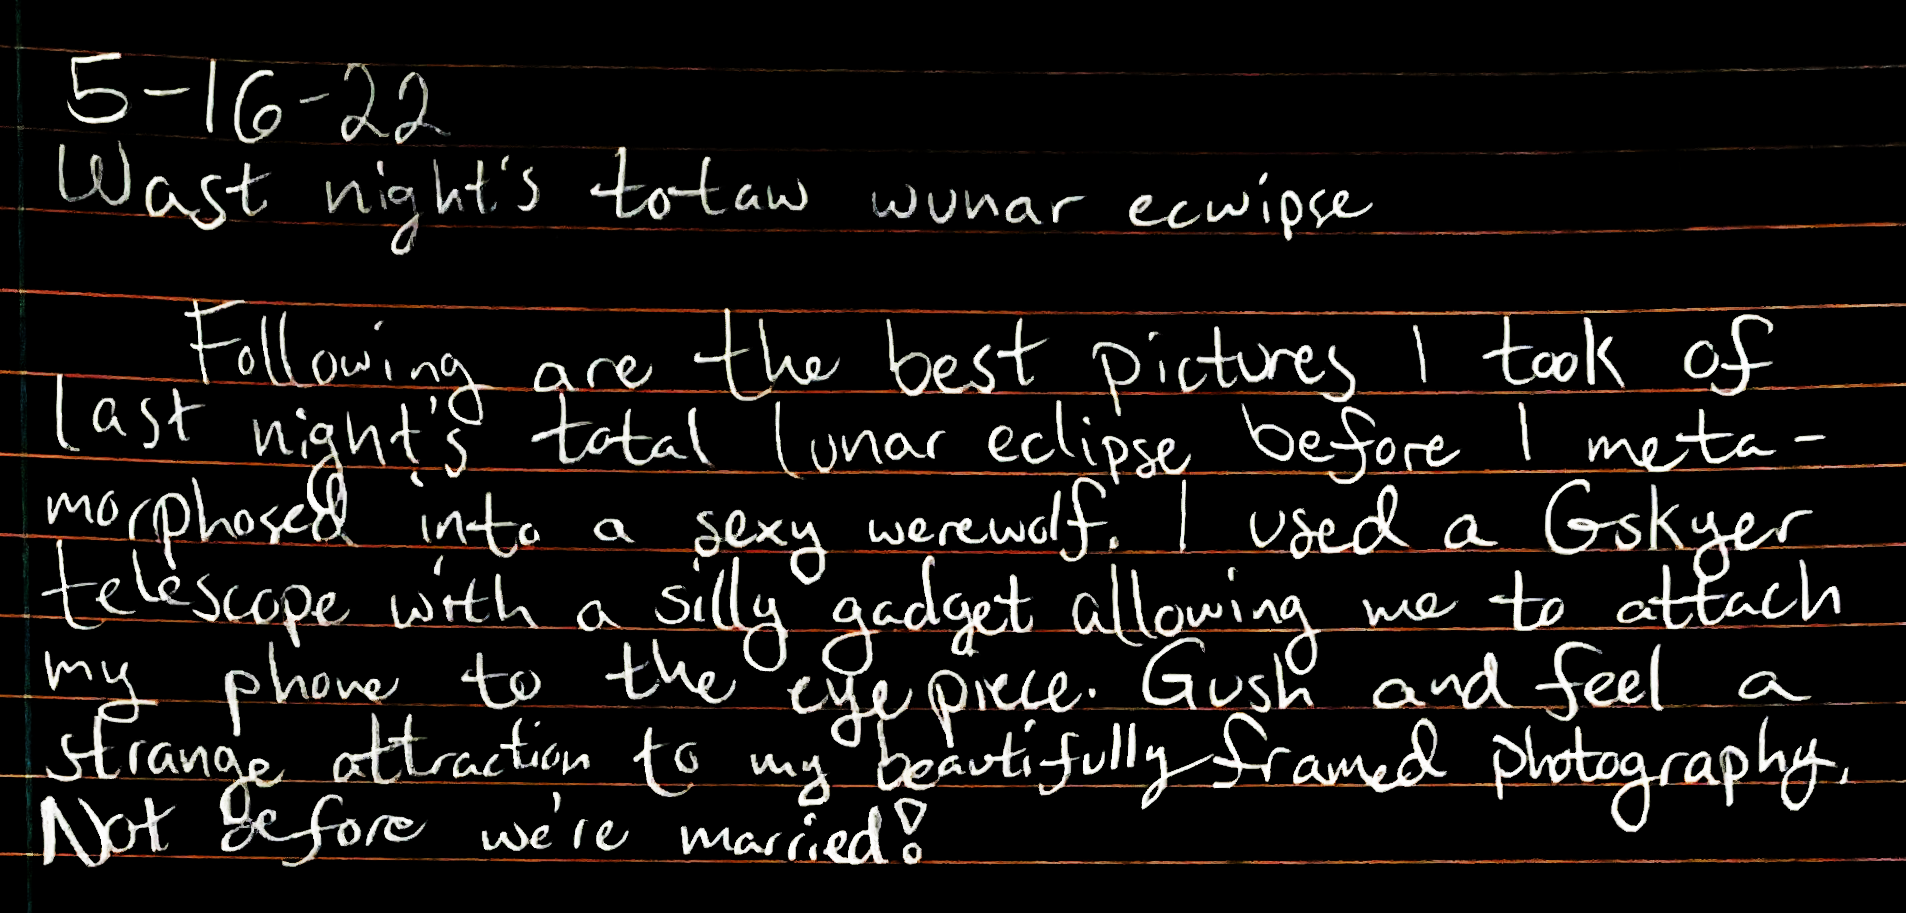 5-16-22
Wast night's totaw wunar ecwipse
Following are the best pictures I took of
last night's total lunar eclipse before I meta-
morphosed into a sexy werewolf. I used a Gskyer
telescope with a silly gadget allowing me to attach
my phone to the eyepiece. Gush and feel a
strange attraction to my beautifully-framed photography.
Not before we're married!